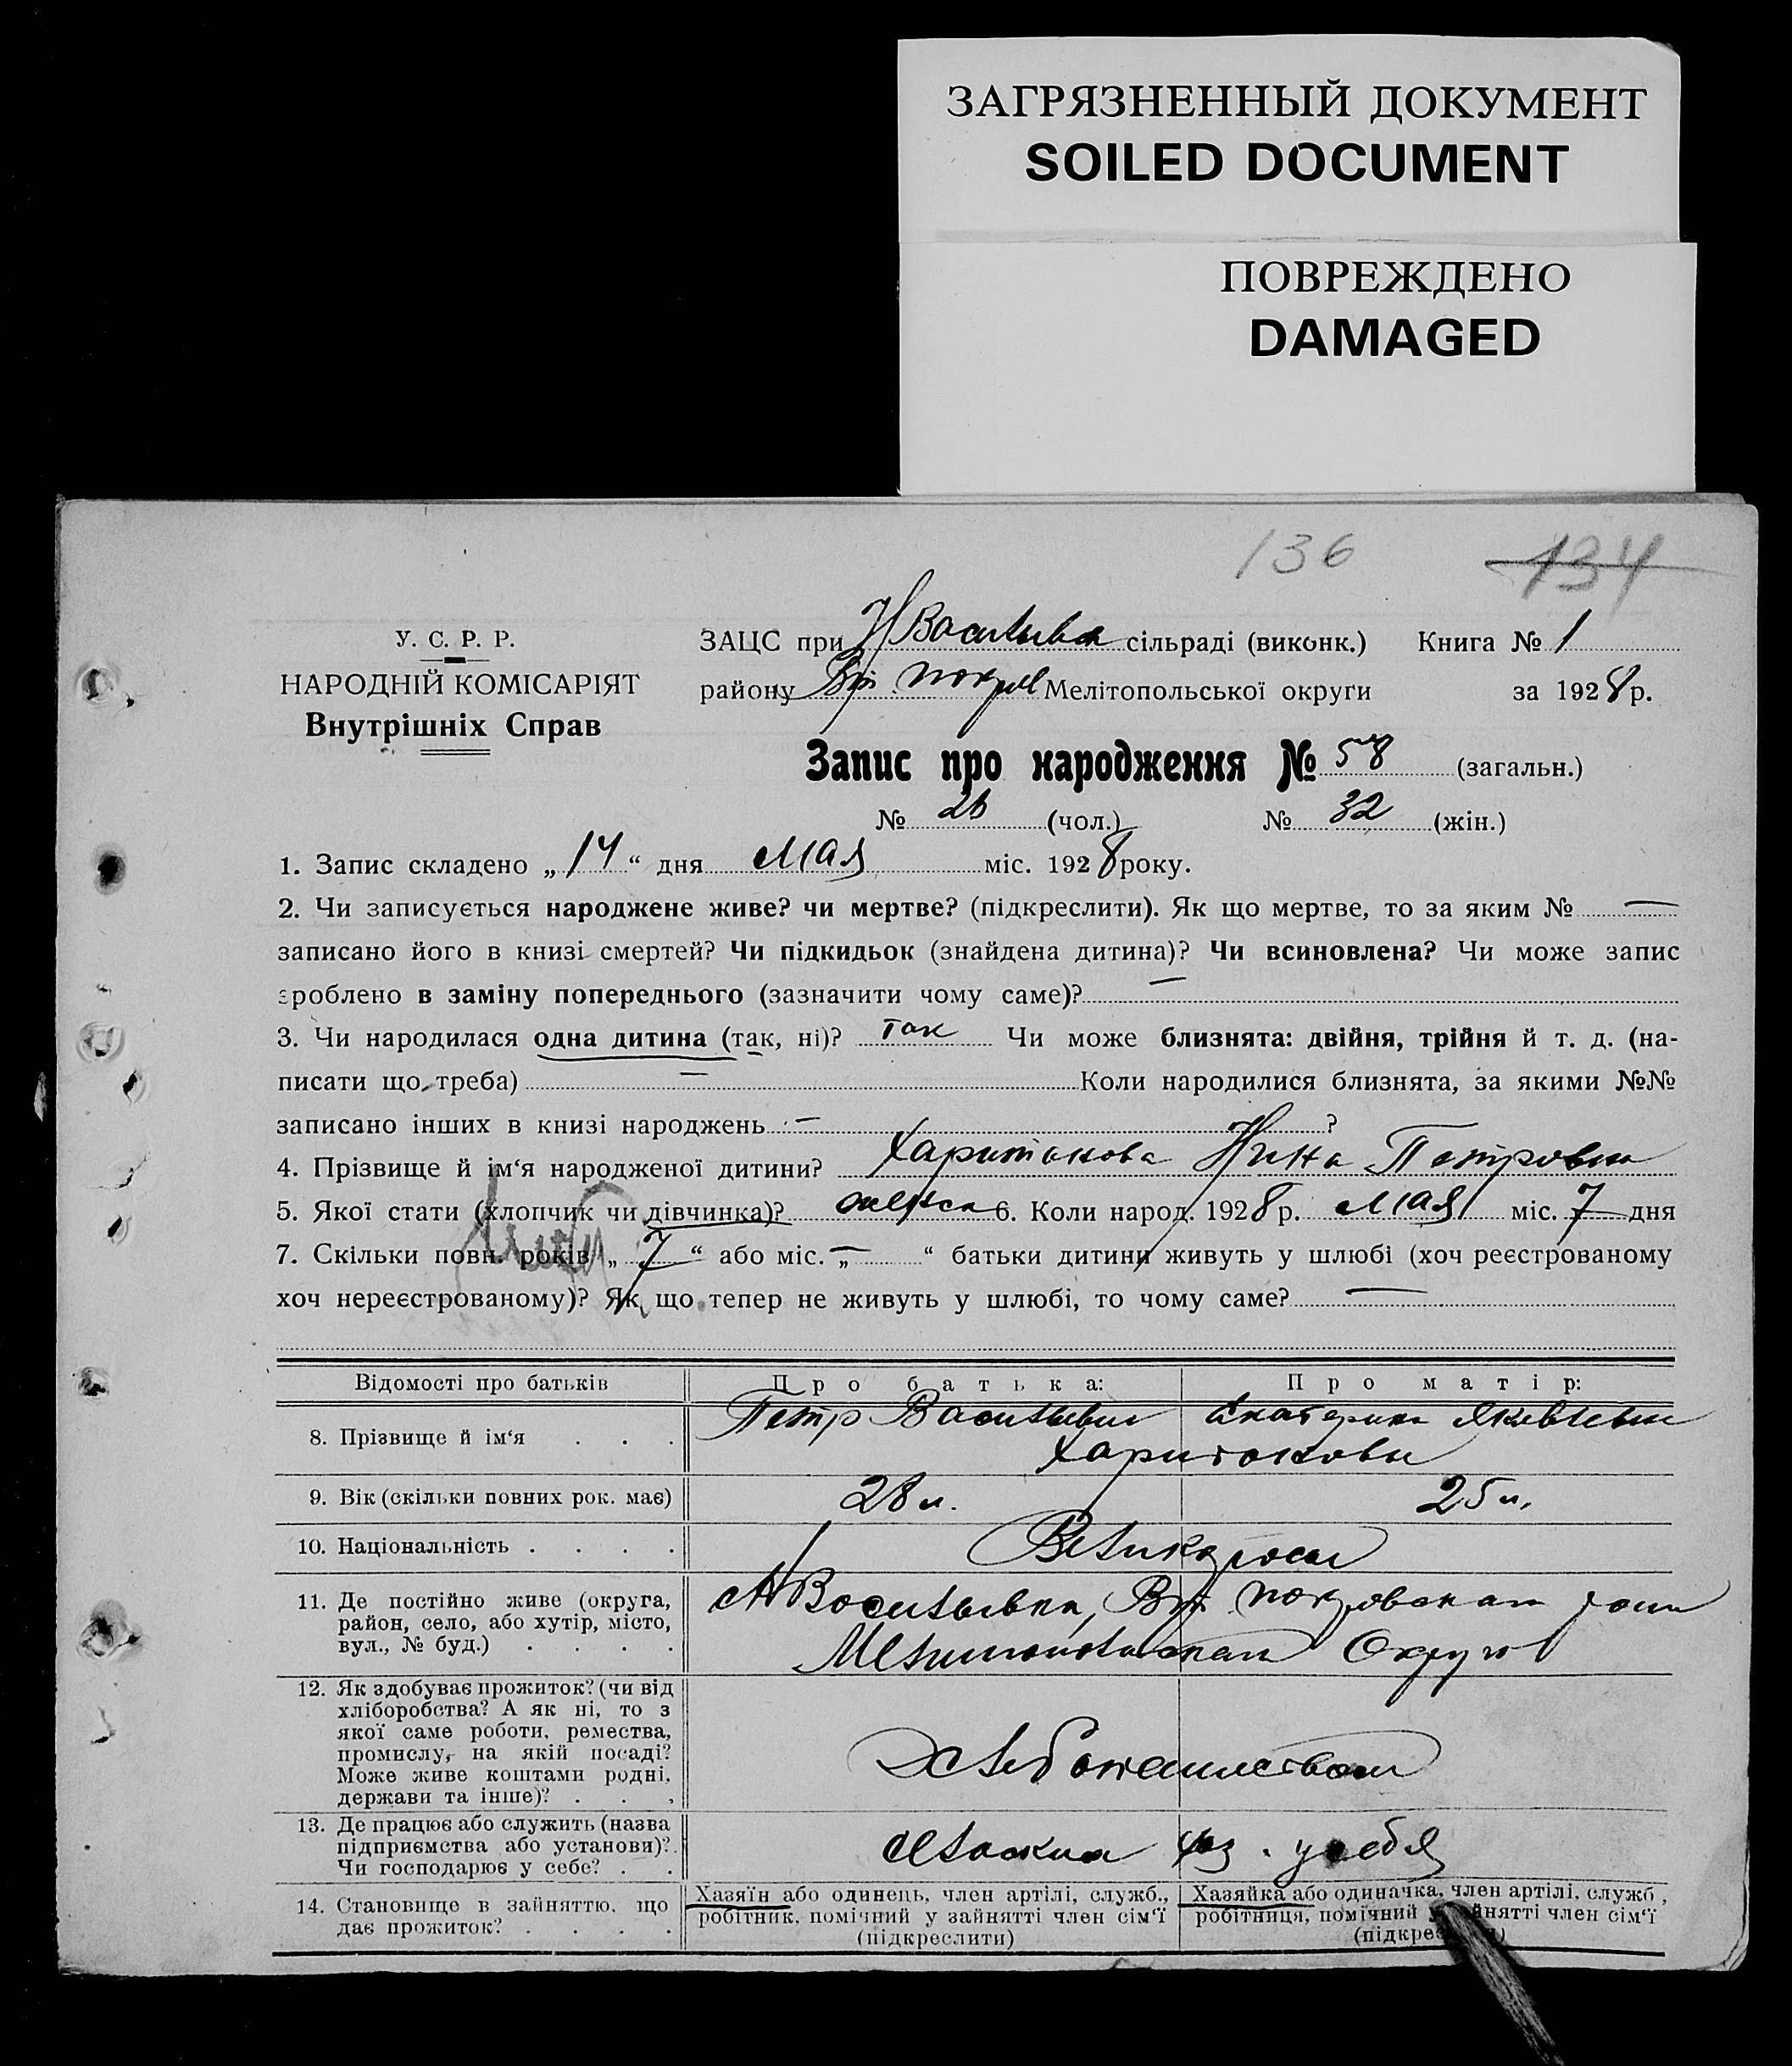 ЗАГРЯЗНЕННЫЙ ДОКУМЕНТ
SOILED DOCUMENT
ПОВРЕЖДЕНО
DAMAGED
136 134
У. С. Р. Р.
НАРОДНІЙ КОМІСАРІЯТ
Внутрішніх Справ
ЗАЦС при Н Васильевк сільраді (виконк.) Книга № 1
району Вр. Покров Мелітопольської округи за 1928 р.
Запис про народження № 58 (загальн.)
№ 26 (чол.) № 32 (жін.)
1. Запис складено „14“ дня Мая міс. 1928 року.
2. Чи записується народжене живе? чи мертве? (підкреслити). Як що мертве, то за яким № —
записано його в книзі смертей? Чи підкидьок (знайдена дитина)? Чи всиновлена? Чи може запис
зроблено в заміну попереднього (зазначити чому саме)? —
3. Чи народилася одна дитина (так, ні)? так Чи може близнята: двійня, трійня й т. д. (на-
писати що треба) — Коли народилися близнята, за якими №№
записано інших в книзі народжень —?
4. Прізвище й ім‘я народженої дитини? Харитонова Нина Петровна
5. Якої стати (хлопчик чи дівчинка)? женск 6. Коли народ. 1928 р. Мая міс. 7 дня
7. Скільки повн. років „7“ або міс. „—“ батьки дитини живуть у шлюбі (хоч реєстрованому
хоч нереєстрованому)? Як що тепер не живуть у шлюбі, то чому саме? —
Відомості про батьків Про батька: Про матір:
8. Прізвище й ім‘я . . . Петр Васильевич Екатерина Яковлевна
Харитоновы
9. Вік (скільки повних рок. має) 28 л. 25 л.
10. Національність . . . . Великороссы
11. Де постійно живе (округа, район, село, або хутір, місто, вул., № буд.) . . . . Н Васильевка, Вр. Покровского района
Мелитопольского Округа
12. Як здобуває прожиток? (чи від хліборобства? А як ні, то з якої саме роботи, ремества, промислу, на якій посаді? Може живе коштами родні, держави та інше)? . . . Хлебопашеством
13. Де працює або служить (назва підприємства або установи)? Чи господарює у себе? . . сельским хоз. у себя
14. Становище в зайняттю, що дає прожиток? . . . .
Хазяїн або одинець, член артілі, служб., робітник, помічний у зайнятті член сім‘ї (підкреслити)
Хазяйка або одиначка, член артілі, служб., робітниця, помічний у зайнятті член сім‘ї (підкреслити)